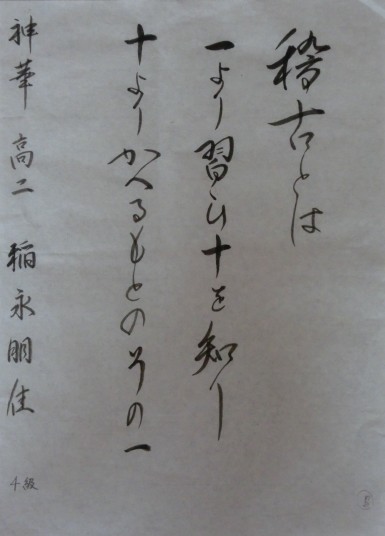 稽古とは
一より習ひ十を知り
十よりかへるもとのその一
神華 高二 稲永朋佳
4級